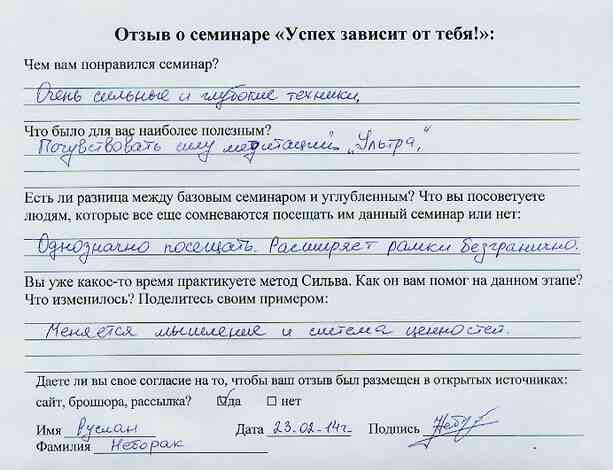 Отзыв о семинаре «Успех зависит от тебя!»:
Чем вам понравился семинар?
Очень сильные и глубокие техники.
Что было для вас наиболее полезным?
Почувствовать силу медитаций „Ультра”
Есть ли разница между базовым семинаром и углубленным? Что вы посоветуете
людям, которые все еще сомневаются посещать им данный семинар или нет:
Однозначно посещать. Расширяет рамки безгранично.
Вы уже какое-то время практикуете метод Сильва. Как он вам помог на данном этапе?
Что изменилось? Поделитесь своим примером:
Меняется мышление и система ценностей.
Даете ли вы свое согласие на то, чтобы ваш отзыв был размещен в открытых источниках:
сайт, брошюра, рассылка? ☑да ☐ нет
Имя Руслан Дата 23.02-14г. Подпись
Фамилия Неборак